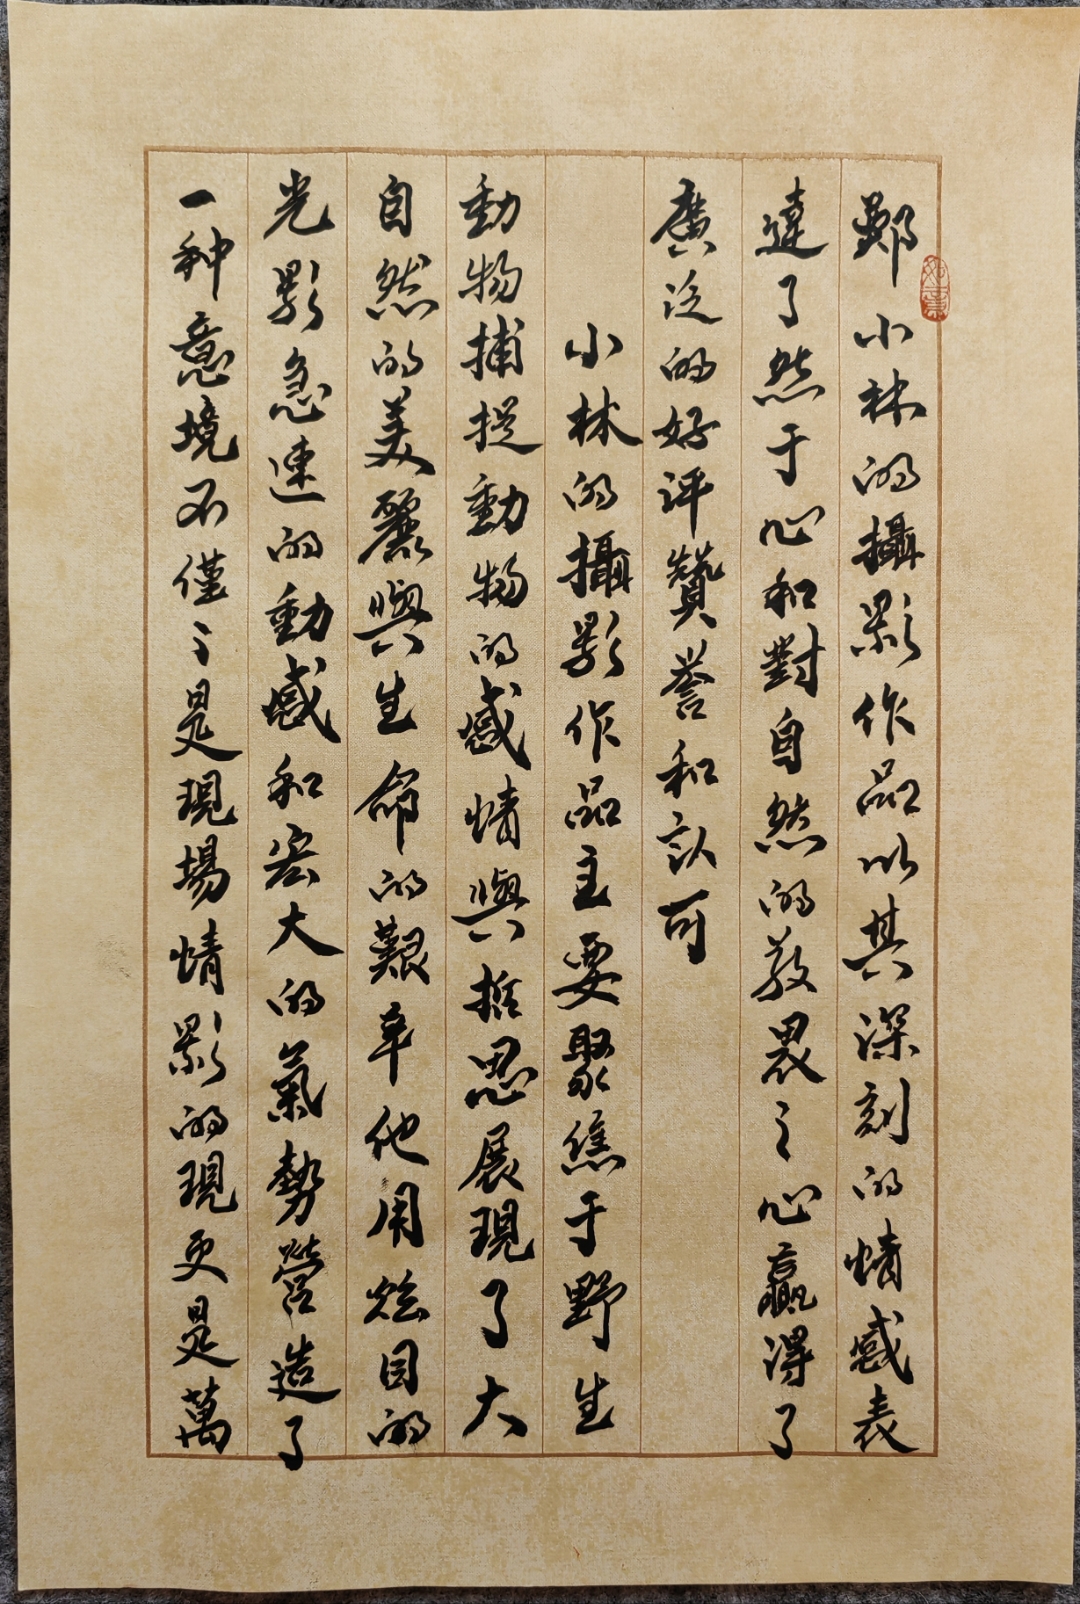 鄭小林的攝影作品以其深刻的情感表
達了然于心和對自然的敬畏之心贏得了
廣泛的好評贊譽和認可
小林的攝影作品主要聚焦于野生
動物捕捉動物的感情與哲思展現了大
自然的美麗與生命的艱辛他用炫目的
光影急速的動感和宏大的氣勢營造了
一种意境不僅僅是現場情影的現更是萬